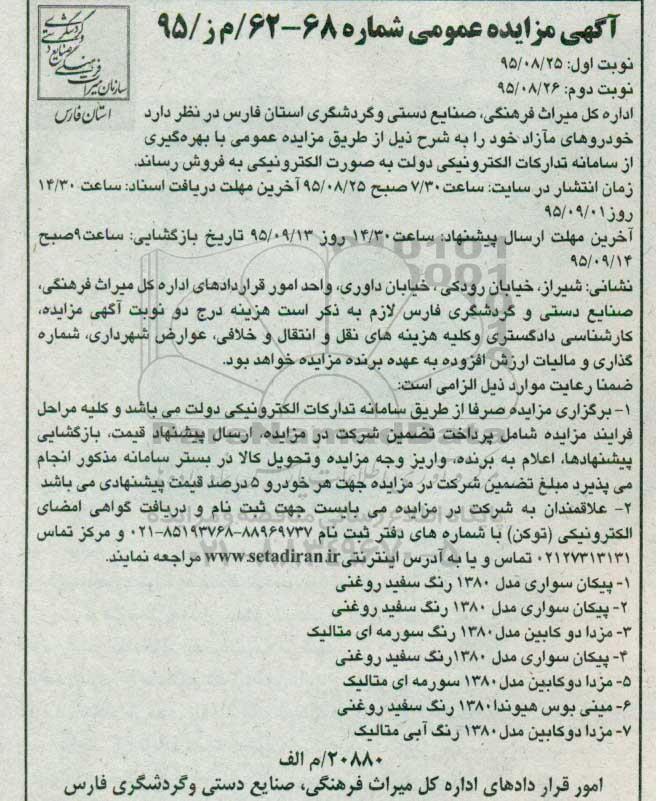 آگهی مزایده عمومی شماره ۶۸-۶۲/م ز/۹۵
سازمان میراث فرهنگی صنایع دستی و گردشگری
استان فارس
نوبت اول: ۹۵/۰۸/۲۵
نوبت دوم: ۹۵/۰۸/۲۶
اداره کل میراث فرهنگی، صنایع دستی وگردشگری استان فارس در نظر دارد
خودروهای مآزاد خود را به شرح ذیل از طریق مزایده عمومی با بهره‌گیری
از سامانه تدارکات الکترونیکی دولت به صورت الکترونیکی به فروش رساند.
زمان انتشار در سایت: ساعت ۷/۳۰ صبح ۹۵/۰۸/۲۵ آخرین مهلت دریافت اسناد: ساعت ۱۴/۳۰
روز ۹۵/۰۹/۰۱
آخرین مهلت ارسال پیشنهاد: ساعت ۱۴/۳۰ روز ۹۵/۰۹/۱۳ تاریخ بازگشایی: ساعت ۹صبح
۹۵/۰۹/۱۴
نشانی: شیراز، خیابان رودکی، خیابان داوری، واحد امور قراردادهای اداره کل میراث فرهنگی،
صنایع دستی و گردشگری فارس لازم به ذکر است هزینه درج دو نوبت آگهی مزایده،
کارشناسی دادگستری وکلیه هزینه های نقل و انتقال و خلافی، عوارض شهرداری، شماره
گذاری و مالیات ارزش افزوده به عهده برنده مزایده خواهد بود.
ضمنا رعایت موارد ذیل الزامی است:
۱- برگزاری مزایده صرفا از طریق سامانه تدارکات الکترونیکی دولت می باشد و کلیه مراحل
فرایند مزایده شامل پرداخت تضمین شرکت در مزایده، ارسال پیشنهاد قیمت، بازگشایی
پیشنهادها، اعلام به برنده، واریز وجه مزایده وتحویل کالا در بستر سامانه مذکور انجام
می پذیرد مبلغ تضمین شرکت در مزایده جهت هر خودرو ۵ درصد قیمت پیشنهادی می باشد
۲- علاقمندان به شرکت در مزایده می بایست جهت ثبت نام و دریافت گواهی امضای
الکترونیکی (توکن) با شماره های دفتر ثبت نام ۸۸۹۶۹۷۳۷-۸۵۱۹۳۷۶۸-۰۲۱ و مرکز تماس
۰۲۱۲۷۳۱۳۱۳۱ تماس و یا به آدرس اینترنتی www.setadiran.ir مراجعه نمایند.
۱- پیکان سواری مدل ۱۳۸۰ رنگ سفید روغنی
۲- پیکان سواری مدل ۱۳۸۰ رنگ سفید روغنی
۳- مزدا دو کابین مدل ۱۳۸۰ رنگ سورمه ای متالیک
۴- پیکان سواری مدل ۱۳۸۰ رنگ سفید روغنی
۵- مزدا دوکابین مدل ۱۳۸۰ سورمه ای متالیک
۶- مینی بوس هیوندا ۱۳۸۰ رنگ سفید روغنی
۷- مزدا دوکابین مدل ۱۳۸۰ رنگ آبی متالیک
۲۰۸۸۰/م الف
امور قرار دادهای اداره کل میراث فرهنگی، صنایع دستی وگردشگری فارس